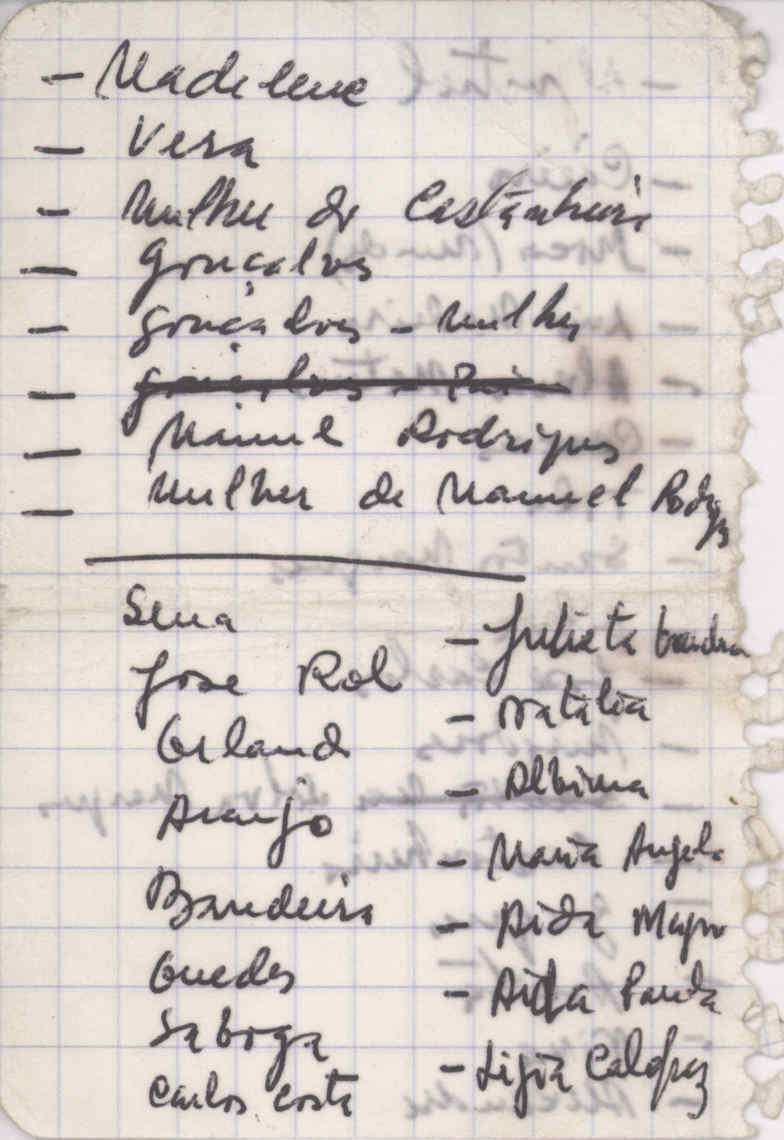 - Madelene
- Vera
- Mulher de Castanheira
- Gonçalves
- Gonçalves - mulher
- Gonçalves
- Manuel Rodrigues
- Mulher de Manuel Rodrigs
Sena
José Rol
Orlando
Araujo
Bandeira
Guedes
Saboga
Carlos Costa
- Julieta Bandeira
- Natália
- Albina
- Maria Angela
- Aida Magro
- Aida Paula
- Ligia Calapez